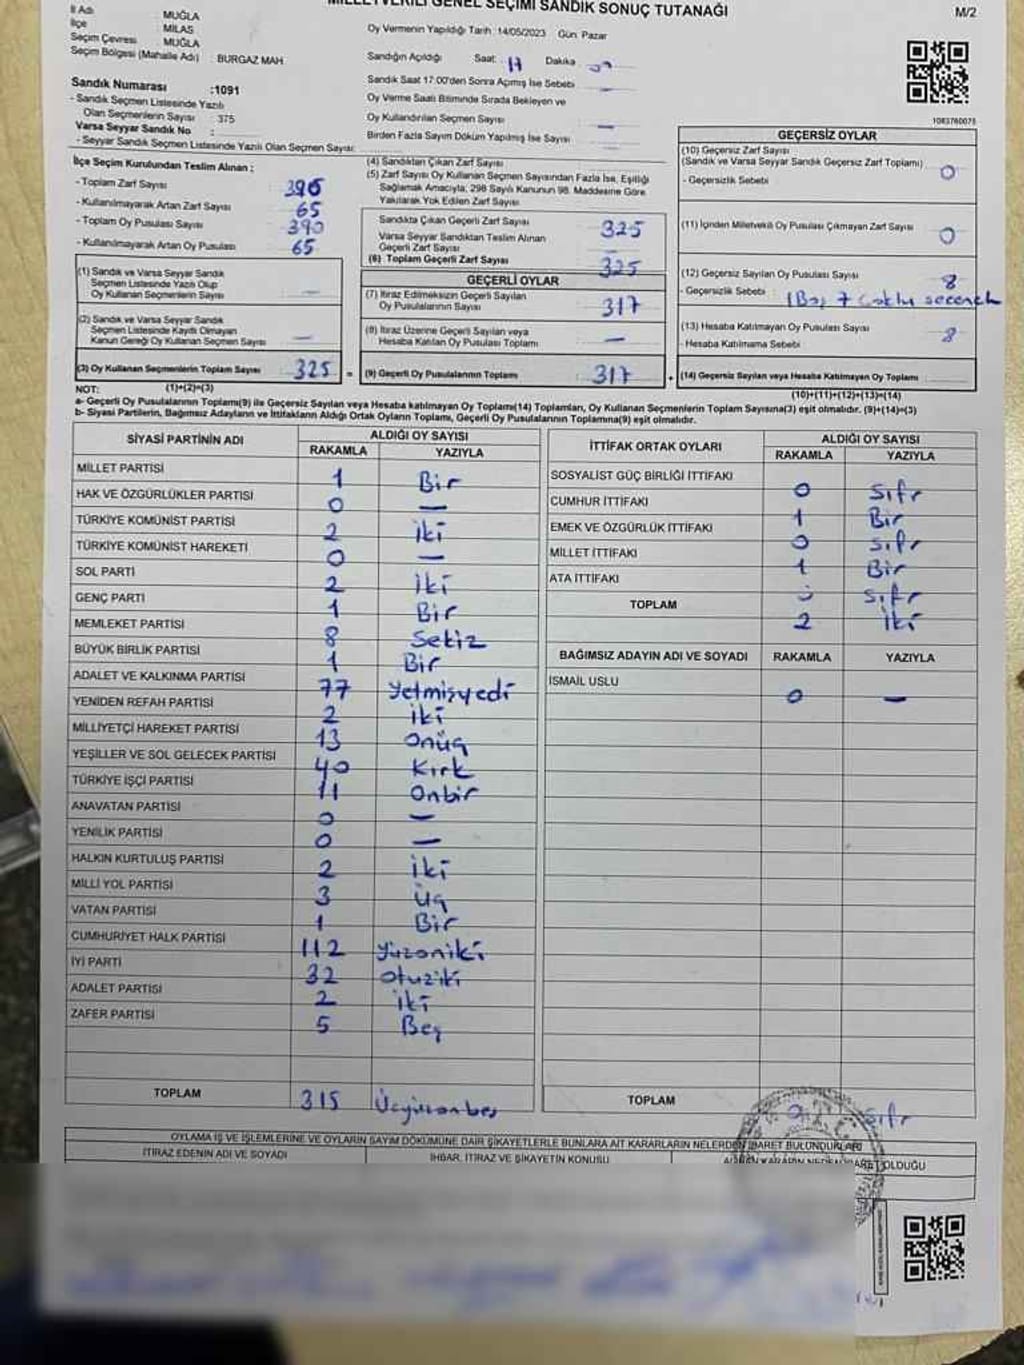 MİLLETVEKİLİ GENEL SEÇİMİ SANDIK SONUÇ TUTANAĞI
M/2
İl Adı MUĞLA
İlçe MİLAS
Seçim Çevresi MUĞLA
Seçim Bölgesi (Mahalle Adı) : BURGAZ MAH.
Oy Vermenin Yapıldığı Tarih: 14/05/2023 Gün: Pazar
Sandığın Açıldığı Saat: 17 Dakika
Sandık Saat 17:00'den Sonra Açılmış İse Sebebi
Oy Verme Saati Bitiminde Sırada Bekleyen ve
Oy Kullandırılan Seçmen Sayısı —
Birden Fazla Sayım Döküm Yapılmış İse Sayısı —
Sandık Numarası :1091
- Sandık Seçmen Listesinde Yazılı
Olan Seçmenlerin Sayısı : 375
Varsa Seyyar Sandık No :
- Seyyar Sandık Seçmen Listesinde Yazılı Olan Seçmen Sayısı:
1083760075
İlçe Seçim Kurulundan Teslim Alınan :
- Toplam Zarf Sayısı
- Kullanılmayarak Artan Zarf Sayısı 65
- Toplam Oy Pusulası Sayısı 390
- Kullanılmayarak Artan Oy Pusulası 65
(1) Sandık ve Varsa Seyyar Sandık
Seçmen Listesinde Yazılı Olup
Oy Kullanan Seçmenlerin Sayısı —
(2) Sandık ve Varsa Seyyar Sandık
Seçmen Listesinde Kaydı Olmayan
Kanun Gereği Oy Kullanan Seçmen Sayısı —
(3) Oy Kullanan Seçmenlerin Toplam Sayısı 325 =
(1)+(2)=(3)
(4) Sandıktan Çıkan Zarf Sayısı
(5) Zarf Sayısı Oy Kullanan Seçmen Sayısından Fazla İse, Eşitliği
Sağlamak Amacıyla; 298 Sayılı Kanunun 98. Maddesine Göre
Yakılarak Yok Edilen Zarf Sayısı
Sandıkta Çıkan Geçerli Zarf Sayısı 325
Varsa Seyyar Sandıktan Teslim Alınan
Geçerli Zarf Sayısı —
(6) Toplam Geçerli Zarf Sayısı 325
GEÇERLİ OYLAR
(7) İtiraz Edilmeksizin Geçerli Sayılan
Oy Pusulalarının Sayısı 317
(8) İtiraz Üzerine Geçerli Sayılan veya
Hesaba Katılan Oy Pusulası Toplamı —
(9) Geçerli Oy Pusulalarının Toplamı 317 +
GEÇERSİZ OYLAR
(10) Geçersiz Zarf Sayısı
(Sandık ve Varsa Seyyar Sandık Geçersiz Zarf Toplamı) 0
- Geçersizlik Sebebi
(11) İçinden Milletvekili Oy Pusulası Çıkmayan Zarf Sayısı 0
(12) Geçersiz Sayılan Oy Pusulası Sayısı 8
- Geçersizlik Sebebi 1 Boş 7 Çoklu seçenek
(13) Hesaba Katılmayan Oy Pusulası Sayısı 8
- Hesaba Katılmama Sebebi
(14) Geçersiz Sayılan veya Hesaba Katılmayan Oy Toplamı
(10)+(11)+(12)+(13)=(14)
NOT:
a- Geçerli Oy Pusulalarının Toplamı(9) ile Geçersiz Sayılan veya Hesaba katılmayan Oy Toplamı(14) Toplamları, Oy Kullanan Seçmenlerin Toplam Sayısına(3) eşit olmalıdır. (9)+(14)=(3)
b- Siyasi Partilerin, Bağımsız Adayların ve İttifakların Aldığı Ortak Oyların Toplamı, Geçerli Oy Pusulalarının Toplamına(9) eşit olmalıdır.
SİYASİ PARTİNİN ADI ALDIĞI OY SAYISI
RAKAMLA YAZIYLA
MİLLET PARTİSİ 1 Bir
HAK VE ÖZGÜRLÜKLER PARTİSİ 0 —
TÜRKİYE KOMÜNİST PARTİSİ 2 İki
TÜRKİYE KOMÜNİST HAREKETİ 0 —
SOL PARTİ 2 İki
GENÇ PARTİ 1 Bir
MEMLEKET PARTİSİ 8 Sekiz
BÜYÜK BİRLİK PARTİSİ 1 Bir
ADALET VE KALKINMA PARTİSİ 77 Yetmişyedi
YENİDEN REFAH PARTİSİ 2 İki
MİLLİYETÇİ HAREKET PARTİSİ 13 Onüç
YEŞİLLER VE SOL GELECEK PARTİSİ 40 Kırk
TÜRKİYE İŞÇİ PARTİSİ 11 Onbir
ANAVATAN PARTİSİ 0 —
YENİLİK PARTİSİ 0 —
HALKIN KURTULUŞ PARTİSİ 2 İki
MİLLİ YOL PARTİSİ 3 Üç
VATAN PARTİSİ 1 Bir
CUMHURİYET HALK PARTİSİ 112 Yüzoniki
İYİ PARTİ 32 Otuziki
ADALET PARTİSİ 2 İki
ZAFER PARTİSİ 5 Beş
TOPLAM 315 Üçyüzonbeş
İTTİFAK ORTAK OYLARI ALDIĞI OY SAYISI
RAKAMLA YAZIYLA
SOSYALİST GÜÇ BİRLİĞİ İTTİFAKI 0 Sıfr
CUMHUR İTTİFAKI 1 Bir
EMEK VE ÖZGÜRLÜK İTTİFAKI 0 Sıfr
MİLLET İTTİFAKI 1 Bir
ATA İTTİFAKI 0 Sıfr
TOPLAM 2 İki
BAĞIMSIZ ADAYIN ADI VE SOYADI RAKAMLA YAZIYLA
İSMAİL USLU 0 —
TOPLAM 0 Sıfr
OYLAMA İŞ VE İŞLEMLERİNE VE OYLARIN SAYIM DÖKÜMÜNE DAİR ŞİKAYETLERLE BUNLARA AİT KARARLARIN NELERDEN İBARET BULUNDUKLARI
İTİRAZ EDENİN ADI VE SOYADI İHBAR, İTİRAZ VE ŞİKAYETİN KONUSU